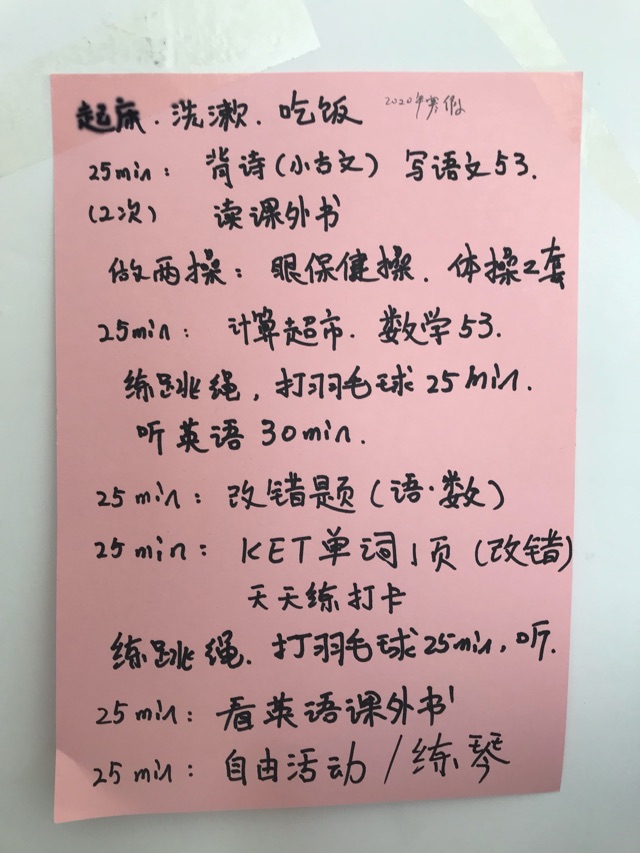 起床.洗漱.吃饭 2020年寒假
25min: 背诗(小古文) 写语文53.
(2次) 读课外书
做两操: 眼保健操. 体操2套
25min: 计算超市. 数学53.
练跳绳, 打羽毛球25min.
听英语30min.
25min: 改错题(语·数)
25min: KET单词1页(改错)
天天练打卡
练跳绳. 打羽毛球25min, 听.
25min: 看英语课外书
25min: 自由活动/练琴